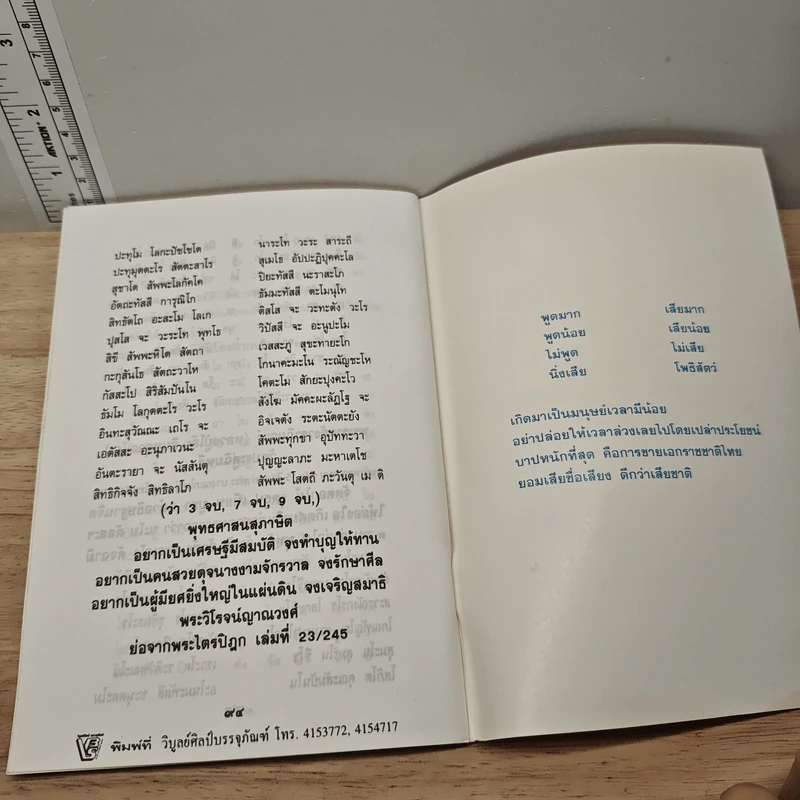 ปะทุโม โลกะปัชโชโต นาระโท วะระ สาระถี
ปะทุมุตตะโร สัตตะสาโร สุเมโธ อัปปะฏิปุคคะโล
สุชาโต สัพพะโลกัคโค ปิยะทัสสี นะราสะโภ
อัตถะทัสสี การุณิโก ธัมมะทัสสี ตะโมนุโท
สิทธัตโถ อะสะโม โลเก ติสโส จะ วะทะตัง วะโร
ปุสโส จะ วะระโท พุทโธ วิปัสสี จะ อะนูปะโม
สิขี สัพพะหิโต สัตถา เวสสะภู สุขะทายะโก
กะกุสันโธ สัตถะวาโห โกนาคะมะโน ระณัญชะโห
กัสสะโป สิริสัมปันโน โคตะโม สักยะปุงคะโว
ธัมโม โลกุตตะโร วะโร สังโฆ มัคคะผะลัฏโฐ จะ
อินทะสุวัณณะ เถโร จะ อิจเจตัง ระตะนัตตะยัง
เอตัสสะ อะนุภาเวนะ สัพพะทุกขา อุปัททะวา
อันตะรายา จะ นัสสันตุ ปุญญะลาภะ มะหาเตโช
สิทธิกิจจัง สิทธิลาโภ สัพพะ โสตถี ภะวันตุ เม ติ
(ว่า 3 จบ, 7 จบ, 9 จบ,)
พุทธศาสนสุภาษิต
อยากเป็นเศรษฐีมีสมบัติ จงทำบุญให้ทาน
อยากเป็นคนสวยดุจนางงามจักรวาล จงรักษาศีล
อยากเป็นผู้มียศยิ่งใหญ่ในแผ่นดิน จงเจริญสมาธิ
พระวิโรจน์ญาณวงศ์
ย่อจากพระไตรปิฎก เล่มที่ 23/245
๙๔
พิมพ์ที่ วิบูลย์ศิลป์บรรจุภัณฑ์ โทร. 4153772, 4154717
พูดมาก เสียมาก
พูดน้อย เสียน้อย
ไม่พูด ไม่เสีย
นิ่งเสีย โพธิสัตว์
เกิดมาเป็นมนุษย์เวลามีน้อย
อย่าปล่อยให้เวลาล่วงเลยไปโดยเปล่าประโยชน์
บาปหนักที่สุด คือการขายเอกราชชาติไทย
ยอมเสียชื่อเสียง ดีกว่าเสียชาติ
3
2
AKTION
1
1
2
3
4
5
6
7
8